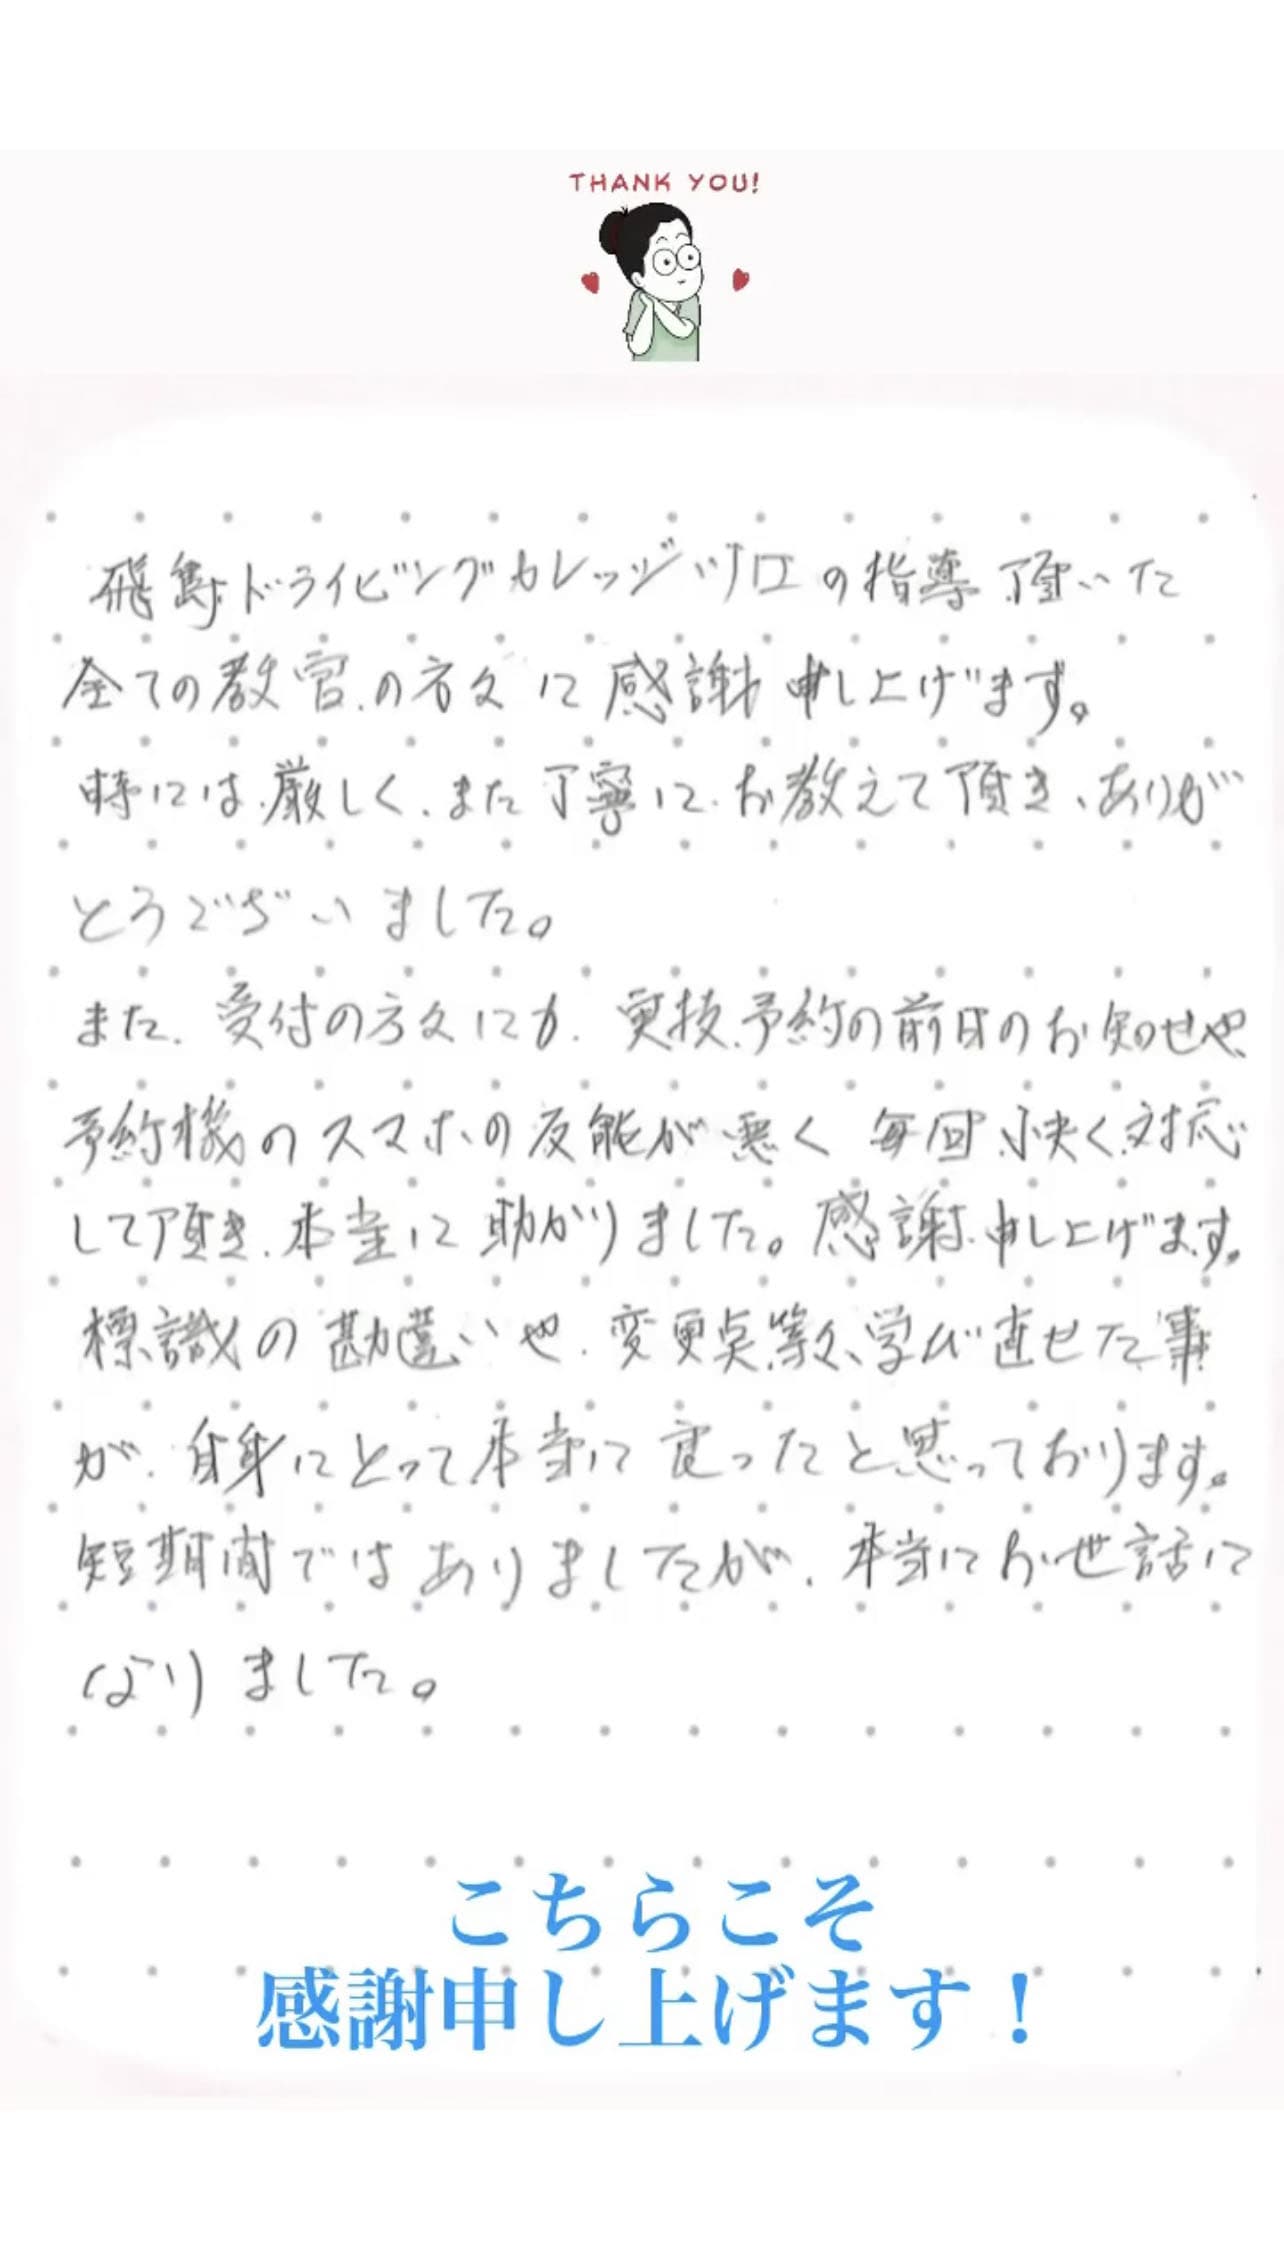 THANK YOU!
飛鳥ドライビングカレッジ川口の指導頂いた
全ての教官の方々に感謝申し上げます。
時には厳しく、また丁寧にお教えて頂き、ありが
とうございました。
また、受付の方々にも、実技予約の前日のお知せや、
予約機のスマホの反能が悪く毎回、快く対応
して頂き、本当に助かりました。感謝申し上げます。
標識の勘違いや、変更点等々、学び直せた事
が、自身にとって本当に良ったと思っております。
短期間ではありましたが、本当にお世話に
なりました。
こちらこそ
感謝申し上げます！